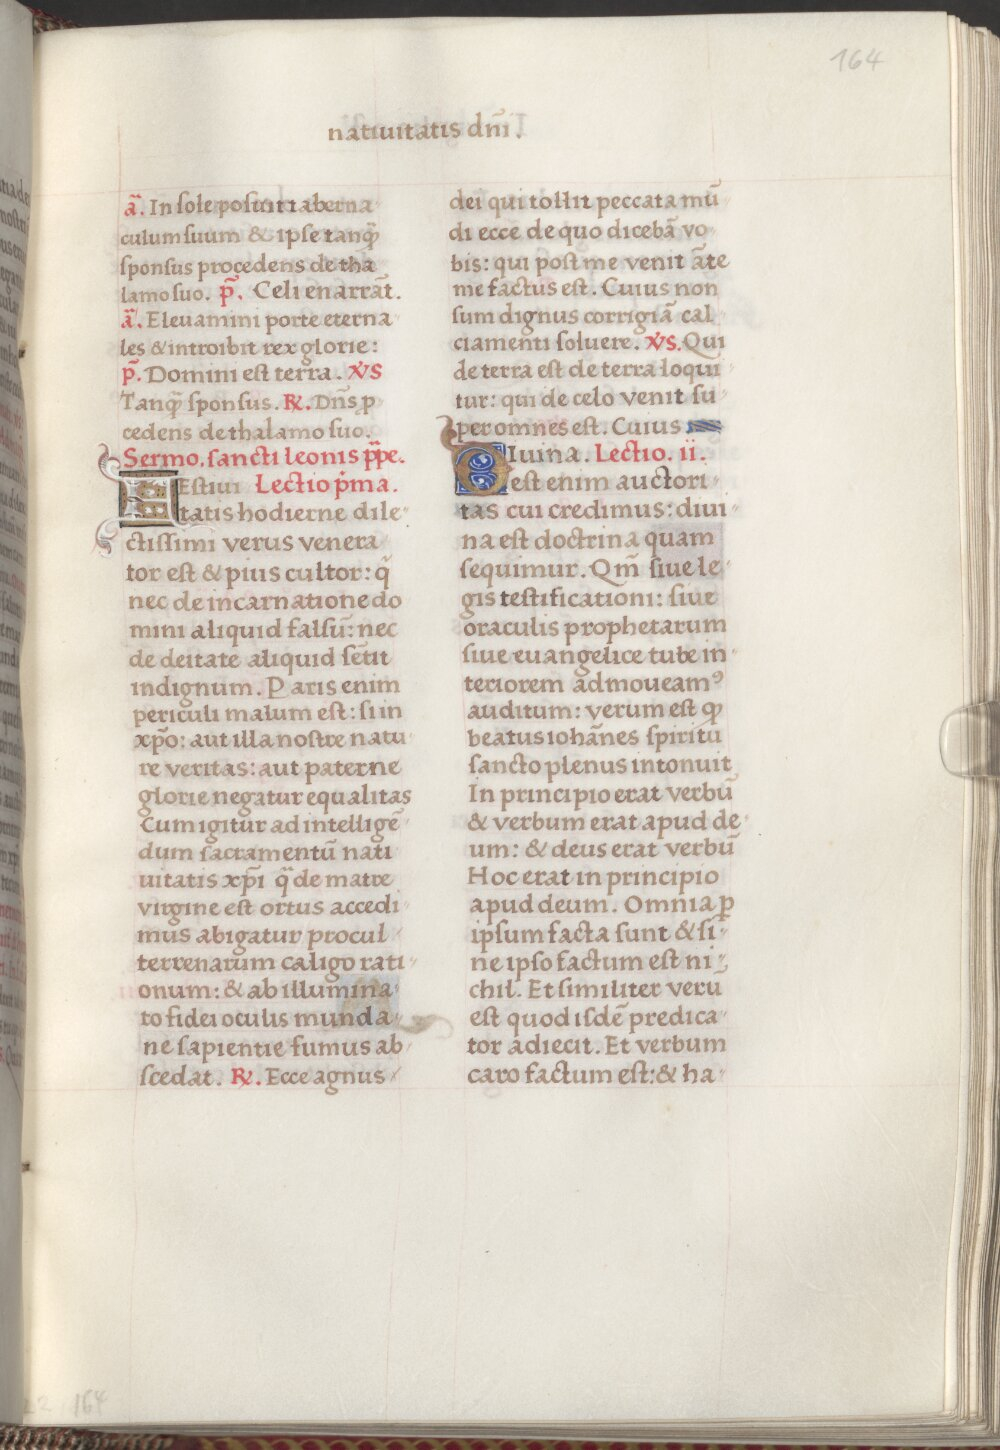 164
natiuitatis dñi.
ã. In sole posuit taberna
culum suum & ipse tanq̃
sponsus procedens de tha
lamo suo. p̃. Celi enarrãt.
ã. Eleuamini porte eterna
les & introibit rex glorie:
p̃. Domini est terra. V̓S
Tanq̃ sponsus. ℟. Dñs ꝓ
cedens de thalamo suo.
Sermo. sancti leonis p̃pe.
FEstiui Lectio p̓ma.
tatis hodierne dile
ctissimi verus venera
tor est & pius cultor: q̃
nec de incarnatione do
mini aliquid falsũ: nec
de deitate aliquid sẽtit
indignum. Paris enim
periculi malum est: si in
xp̃o: aut illa nostre natu
re veritas: aut paterne
glorie negatur equalitas
Cum igitur ad intelligẽ
dum sacramentũ nati
uitatis xp̃i q̃ de matre
virgine est ortus accedi
mus abigatur procul
terrenarum caligo rati
onum: & ab illumina
to fidei oculis munda
ne sapientie fumus ab
scedat. ℟. Ecce agnus
dei qui tollit peccata mũ
di ecce de quo dicebã vo
bis: qui post me venit ãte
me factus est. Cuius non
sum dignus corrigiã cal
ciamenti soluere. V̓S. Qui
de terra est de terra loqui
tur: qui de celo venit su
per omnes est. Cuius
DIuina. Lectio. ii.
est enim auctori
tas cui credimus: diui
na est doctrina quam
sequimur. Qm̃ siue le
gis testificationi: siue
oraculis prophetarum
siue euangelice tube in
teriorem admoueamꝰ
auditum: verum est ꝙ
beatus iohãnes spiritu
sancto plenus intonuit
In principio erat verbũ
& verbum erat apud de
um: & deus erat verbũ
Hoc erat in principio
apud deum. Omnia ꝑ
ipsum facta sunt & si
ne ipso factum est ni
chil. Et similiter veru
est quod isdẽ predica
tor adiecit. Et verbum
caro factum est: & ha
164